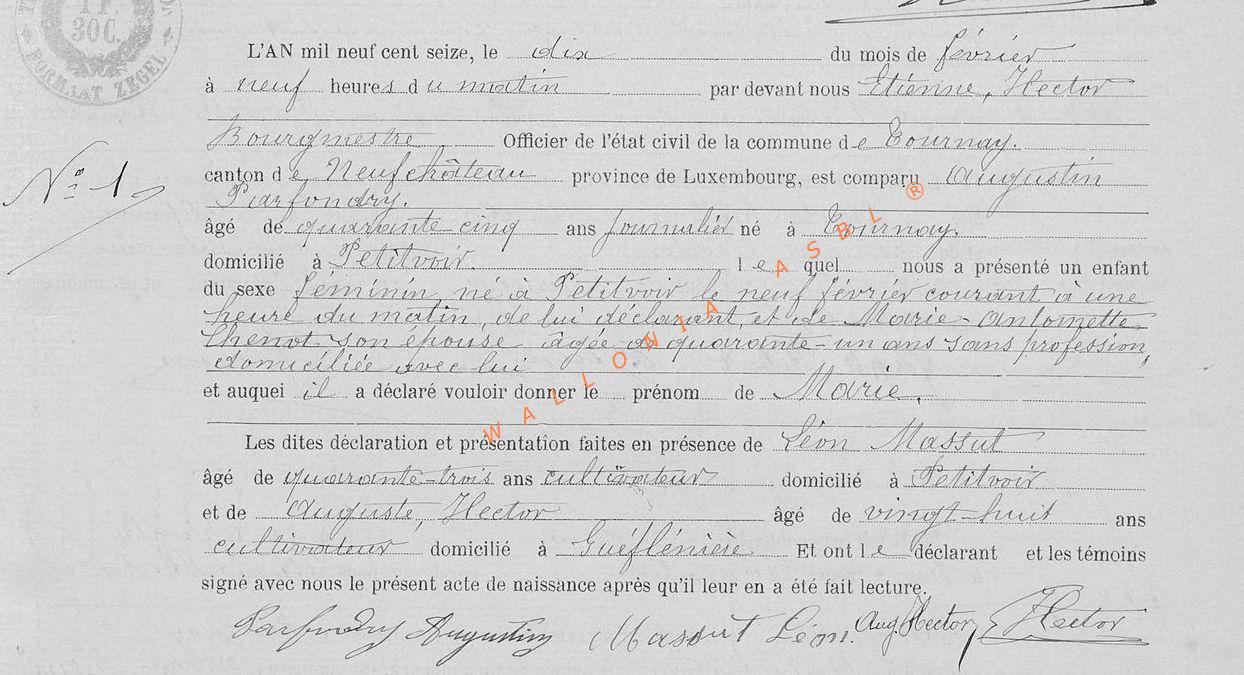 1 F.
30C.
FORMAAT ZEGEL
L'AN mil neuf cent seize, le dix du mois de février
à neuf heures du matin par devant nous Etienne, Hector
Bourgmestre Officier de l'état civil de la commune de Tournay.
N° 1
canton de Neufchâteau province de Luxembourg, est comparu Augustin
Parfondry.
âgé de quarante cinq ans journalier né à Tournay.
domicilié à Petitvoir. lequel nous a présenté un enfant
du sexe féminin né à Petitvoir le neuf février courant à une
heure du matin, de lui déclarant, et de Marie-Antoinette
Thenot son épouse âgée de quarante-un ans sans profession,
domiciliée avec lui
et auquel il a déclaré vouloir donner le prénom de Marie.
Les dites déclaration et présentation faites en présence de Léon Massut
âgé de quarante-trois ans cultivateur domicilié à Petitvoir
et de Auguste, Hector âgé de vingt-huit ans
cultivateur domicilié à Gueflénière Et ont le déclarant et les témoins
signé avec nous le présent acte de naissance après qu'il leur en a été fait lecture.
Parfondry Augustin Massut Léon. Aug. Hector, Hector
WALLONIA ASBL ®